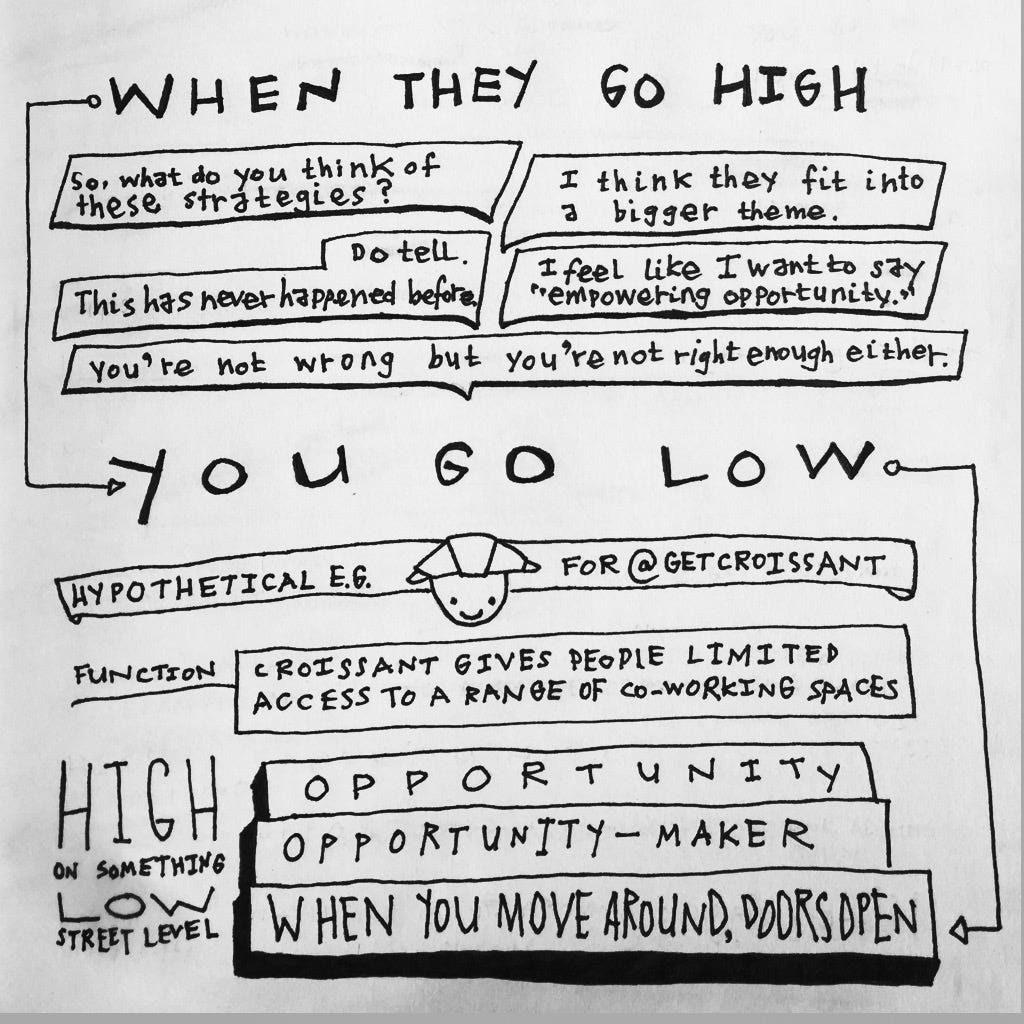 WHEN THEY GO HIGH
So, what do you think of
these strategies?
I think they fit into
a bigger theme.
Do tell.
This has never happened before.
I feel like I want to say
"empowering opportunity."
You're not wrong but you're not right enough either.
YOU GO LOW
HYPOTHETICAL E.G. FOR @GETCROISSANT
FUNCTION
CROISSANT GIVES PEOPLE LIMITED
ACCESS TO A RANGE OF CO-WORKING SPACES
HIGH
ON SOMETHING
LOW
STREET LEVEL
OPPORTUNITY
OPPORTUNITY-MAKER
WHEN YOU MOVE AROUND, DOORS OPEN